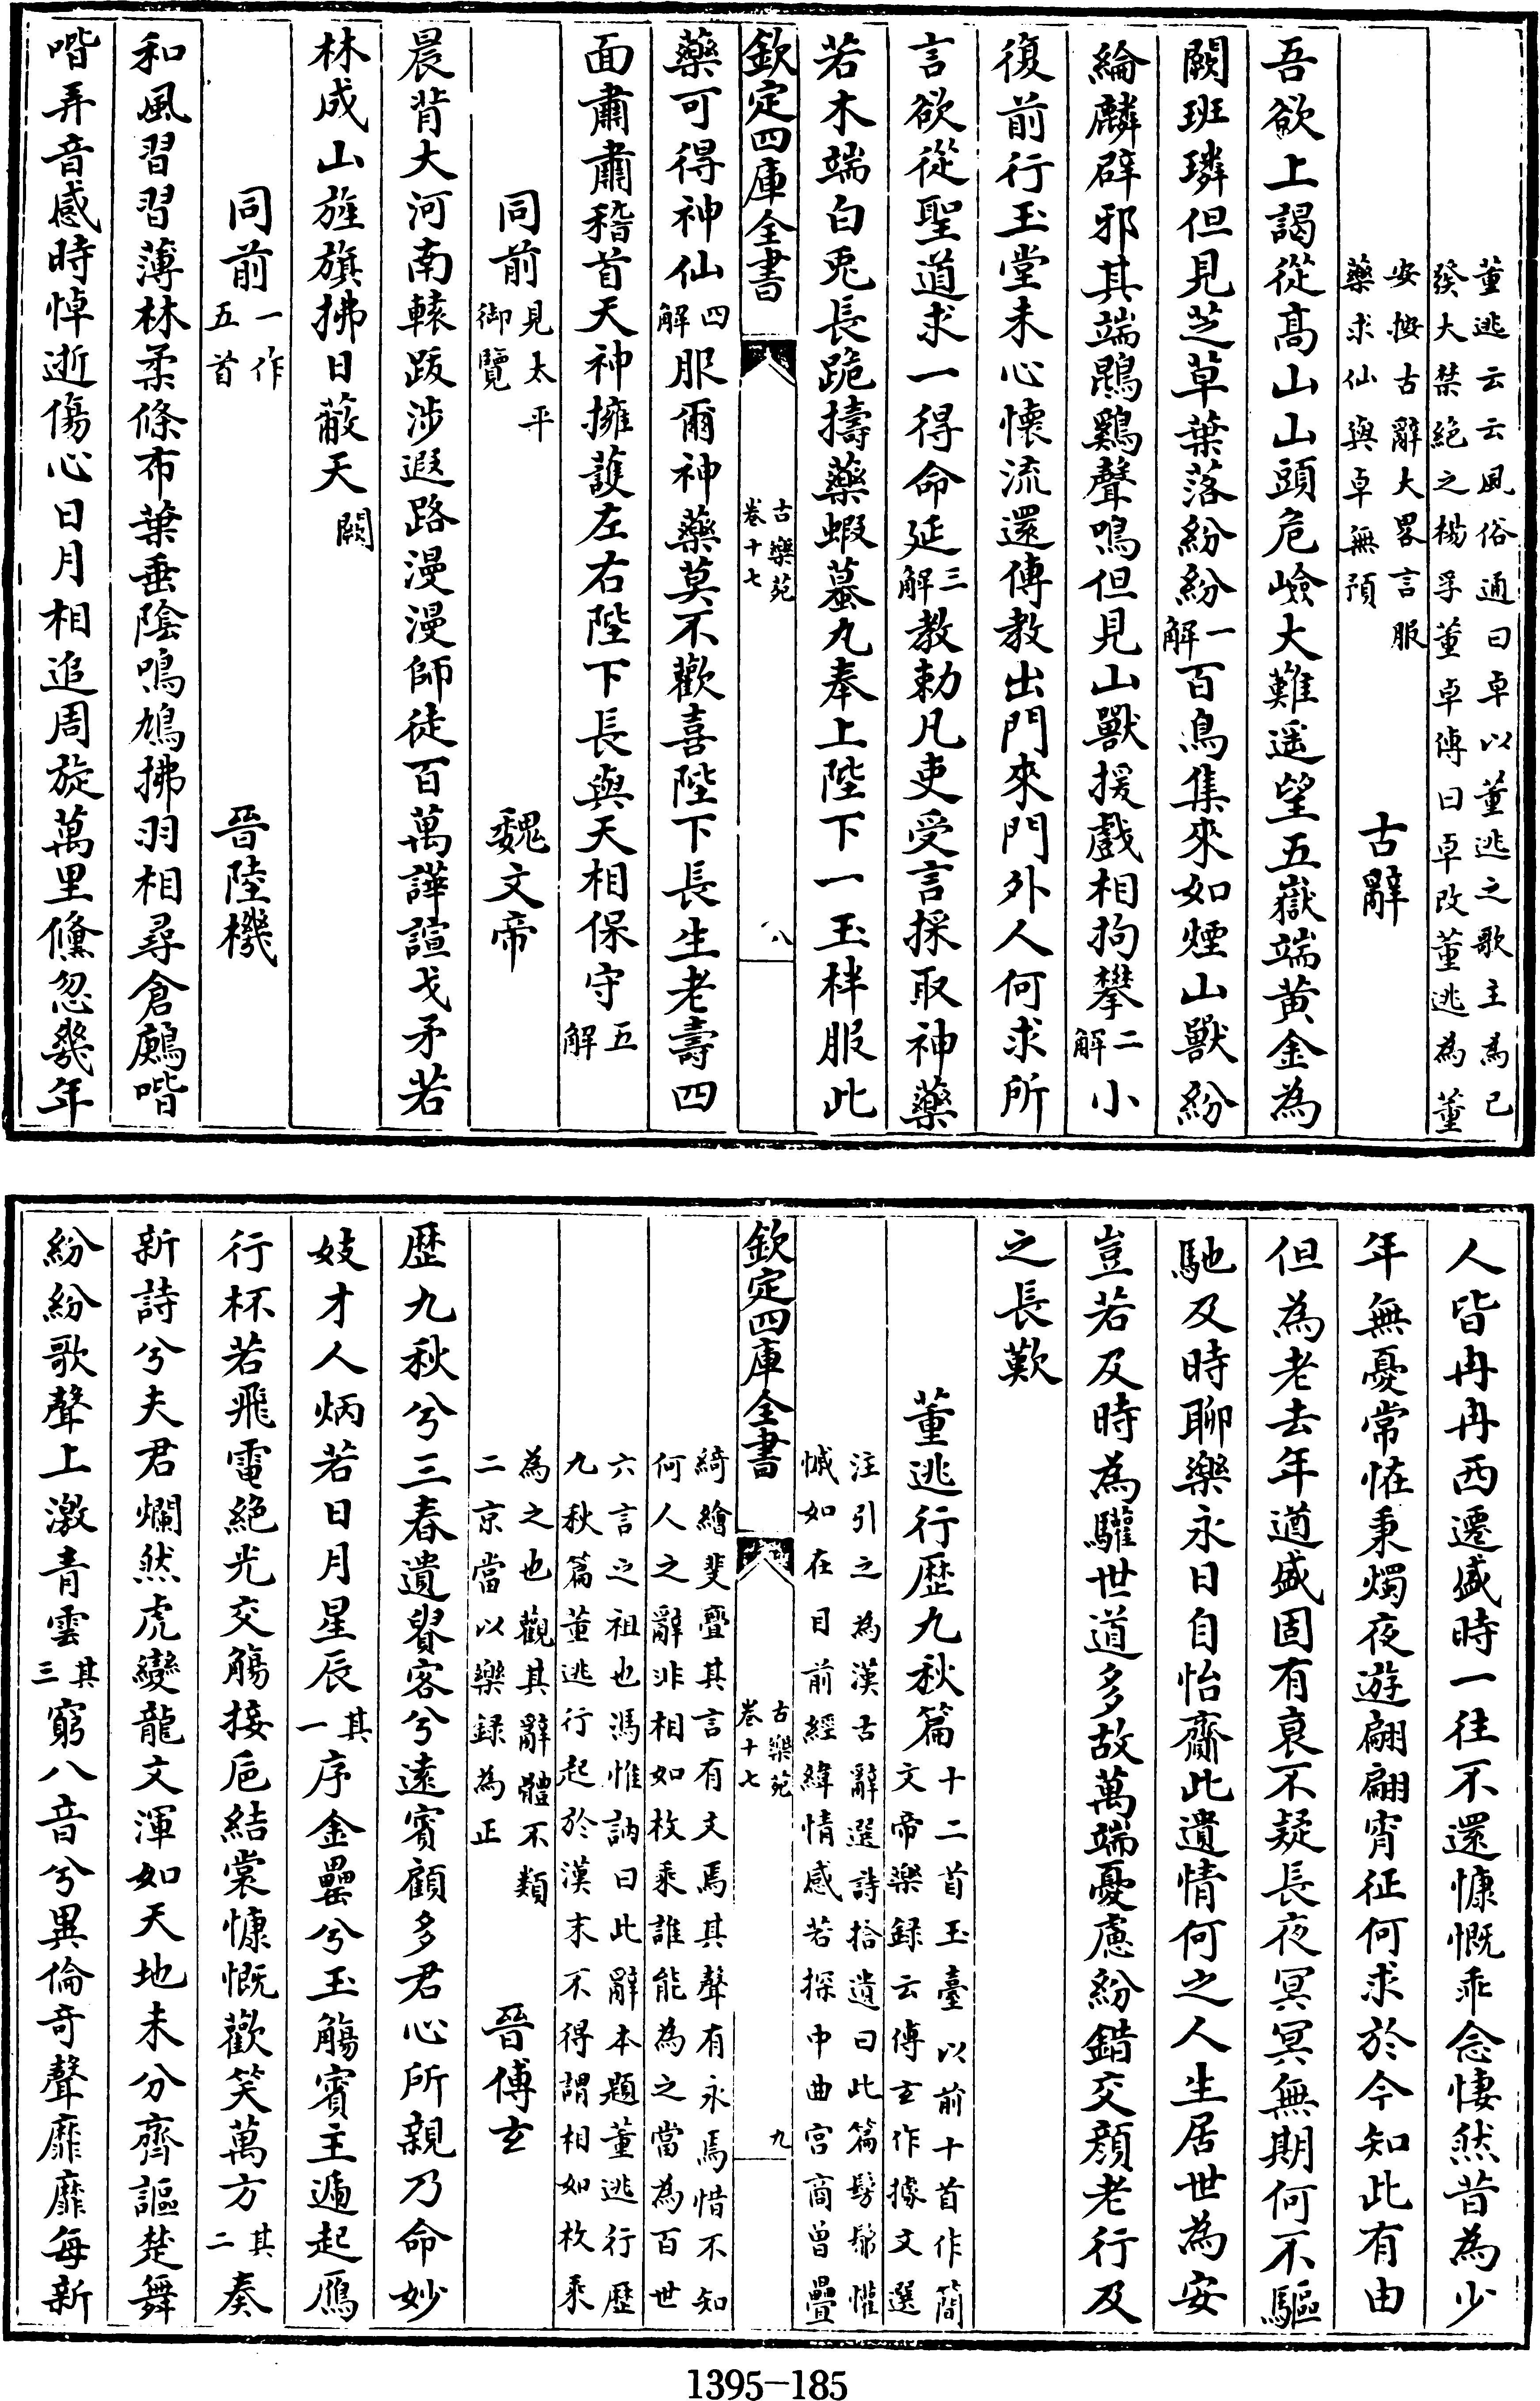 董逃云云風俗通曰卓以董逃之歌主為已
發大禁絕之楊孚董卓傳曰卓改董逃為董
安按古辭大畧言服
藥求仙與卓無預
古辭
吾欲上謁從髙山山頭危嶮大難遥望五嶽端黄金為
闕班璘但見芝草葉落紛紛一解百鳥集來如煙山獸紛
綸麟辟邪其端鵾鷄聲鳴但見山獸援戲相拘攀二解小
復前行玉堂未心懷流還傳教出門來門外人何求所
言欲從聖道求一得命延三解教勅凡吏受言採取神藥
若木端白兎長跪擣藥蝦蟇丸奉上陛下一玉柈服此
欽定四庫全書
古樂苑
卷十七
八
藥可得神仙四解服爾神藥莫不歡喜陛下長生老壽四
面肅肅稽首天神擁護左右陛下長與天相保守五解
同前見太平御覽 魏文帝
晨背大河南轅跋涉遐路漫漫師徒百萬譁諠戈矛若
林成山旌旗拂日蔽天闕
同前一作五首 晉陸機
和風習習薄林柔條布葉垂陰鳴鳩拂羽相尋倉鶊喈
喈弄音感時悼逝傷心日月相追周旋萬里儵忽幾年
人皆冉冉西遷盛時一往不還慷慨乖念悽然昔為少
年無憂常恠秉燭夜遊翩翩宵征何求於今知此有由
但為老去年遒盛固有衰不疑長夜冥冥無期何不驅
馳及時聊樂永日自怡齎此遺情何之人生居世為安
豈若及時為驩世道多故萬端憂慮紛錯交顔老行及
之長歎
董逃行歴九秋篇十二首玉臺以前十首作簡
文帝樂録云傅𤣥作據文選
注引之為漢古辭選詩拾遺曰此篇髣髴懽
慽如在目前經緯情感若探中曲宫商曾疊
欽定四庫全書
古樂苑
卷十七
九
綺繪斐亹其言有文焉其聲有永焉惜不知
何人之辭非相如枚乘誰能為之當為百世
六言之祖也馮惟訥曰此辭本題董逃行歴
九秋篇董逃行起於漢末不得謂相如枚乘
為之也觀其辭體不類
二京當以樂録為正
晉傅𤣥
歴九秋兮三春遺貴客兮遠賓顧多君心所親乃命妙
妓才人炳若日月星辰其一序金罍兮玉觴賓主遞起鴈
行杯若飛電絶光交觴接巵結裳慷慨歡笑萬方其二奏
新詩兮夫君爛然虎變龍文渾如天地未分齊謳楚舞
紛紛歌聲上激青雲其三窮八音兮異倫奇聲靡靡每新
1395-185